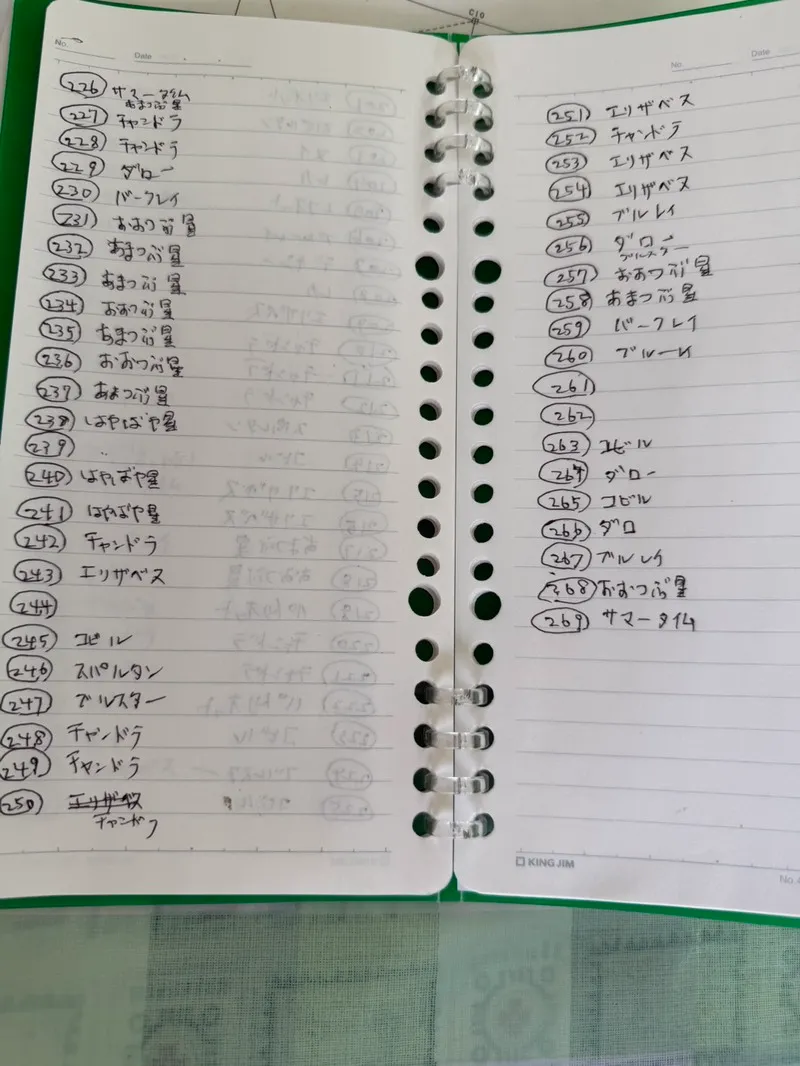 C10
No.
Date
226 サマータイム
あまつぶ星
227 チャンドラ
228 チャンドラ
229 ダロー
230 バークレイ
231 おおつぶ星
232 あまつぶ星
233 あまつぶ星
234 おおつぶ星
235 あまつぶ星
236 おおつぶ星
237 あまつぶ星
238 はやばや星
239
240 はやばや星
241 はやばや星
242 チャンドラ
243 エリザベス
244
245 コビル
246 スパルタン
247 ブルスター
248 チャンドラ
249 チャンドラ
250 エリザベス
チャンドラ
No.
Date
251 エリザベス
252 チャンドラ
253 エリザベス
254 エリザベス
255 ブルレイ
256 ダロー
ブルスター
257 おおつぶ星
258 あまつぶ星
259 バークレイ
260 ブルーレイ
261
262
263 コビル
264 ダロー
265 コビル
266 ダロ
267 ブルレイ
268 おおつぶ星
269 サマータイム
KING JIM
No.4